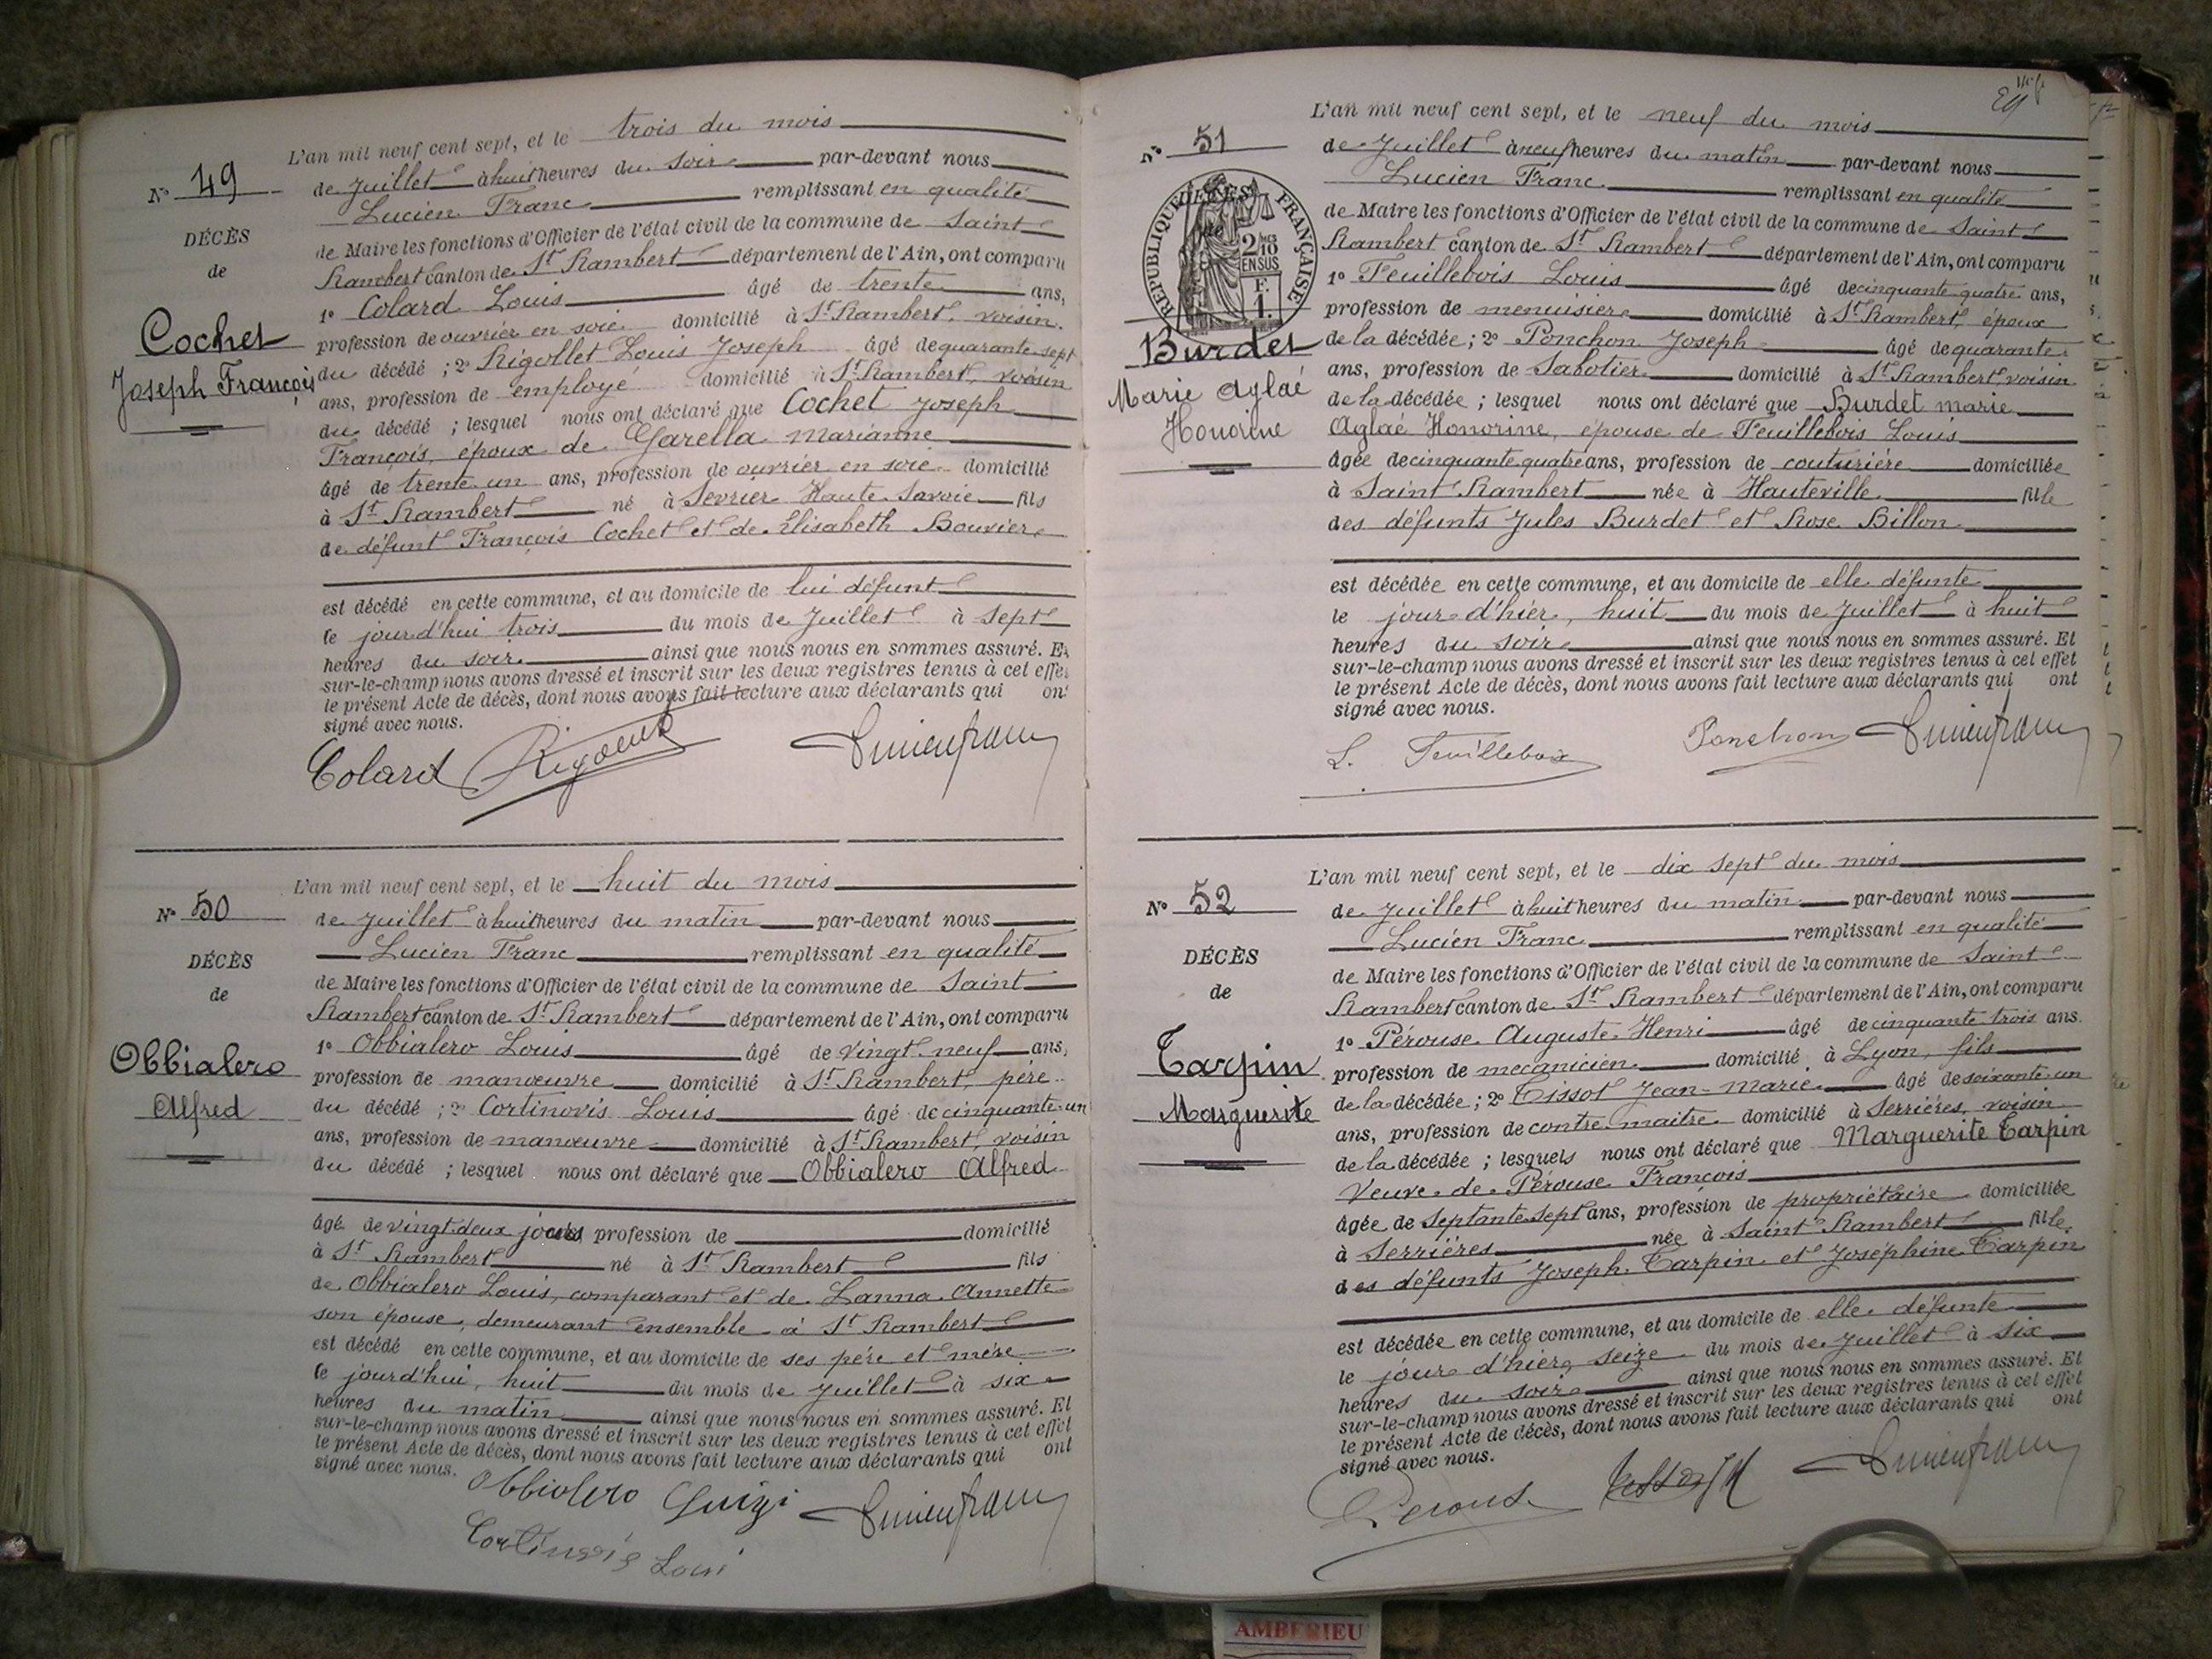 N° 49
DÉCÈS
de
Cochet
Joseph François
L'an mil neuf cent sept, et le trois du mois
de Juillet à huit heures du soir par-devant nous
Lucien Franc remplissant en qualité
de Maire les fonctions d'Officier de l'état civil de la commune de Saint
Rambert canton de St Rambert département de l'Ain, ont comparu
1° Colard Louis âgé de trente ans,
profession de ouvrier en soie domicilié à St Rambert, voisin
du décédé ; 2° Rigollet Louis Joseph âgé de quarante sept
ans, profession de employé domicilié à St Rambert, voisin
du décédé ; lesquel nous ont déclaré que Cochet Joseph
François, époux de Garella Marianne
âgé de trente un ans, profession de ouvrier en soie domicilié
à St Rambert né à Sevrier Haute Savoie fils
de défunt François Cochet et de Elisabeth Bouvier
est décédé en cette commune, et au domicile de lui défunt
le jourd'hui trois du mois de Juillet à sept
heures du soir ainsi que nous nous en sommes assuré. Et
sur-le-champ nous avons dressé et inscrit sur les deux registres tenus à cet effet
le présent Acte de décès, dont nous avons fait lecture aux déclarants qui ont
signé avec nous.
Colard Rigollet Lucien Franc
N° 50
DÉCÈS
de
Obbialero
Alfred
L'an mil neuf cent sept, et le huit du mois
de Juillet à huit heures du matin par-devant nous
Lucien Franc remplissant en qualité
de Maire les fonctions d'Officier de l'état civil de la commune de Saint
Rambert canton de St Rambert département de l'Ain, ont comparu
1° Obbialero Louis âgé de vingt neuf ans,
profession de manœuvre domicilié à St Rambert, père
du décédé ; 2° Cortinovis Louis âgé de cinquante un
ans, profession de manœuvre domicilié à St Rambert, voisin
du décédé ; lesquel nous ont déclaré que Obbialero Alfred
âgé de vingt deux jours profession de domicilié
à St Rambert né à St Rambert fils
de Obbialero Louis, comparant et de Lanna Annette
son épouse, demeurant ensemble à St Rambert
est décédé en cette commune, et au domicile de ses père et mère
le jourd'hui, huit du mois de Juillet à six
heures du matin ainsi que nous nous en sommes assuré. Et
sur-le-champ nous avons dressé et inscrit sur les deux registres tenus à cet effet
le présent Acte de décès, dont nous avons fait lecture aux déclarants qui ont
signé avec nous.
Obbiolero Luigi Lucien Franc
Cortinovis Loui
N° 51
REPUBLIQUE FRANÇAISE
2/10
EN SUS
F.
1.
Burdet
Marie Aglaé
Honorine
L'an mil neuf cent sept, et le neuf du mois
de Juillet à neuf heures du matin par-devant nous
Lucien Franc remplissant en qualité
de Maire les fonctions d'Officier de l'état civil de la commune de Saint
Rambert canton de St Rambert département de l'Ain, ont comparu
1° Feuillebois Louis âgé de cinquante quatre ans,
profession de menuisier domicilié à St Rambert, époux
de la décédée ; 2° Ponchon Joseph âgé de quarante
ans, profession de Sabotier domicilié à St Rambert, voisin
de la décédée ; lesquel nous ont déclaré que Burdet marie
Aglaé Honorine, épouse de Feuillebois Louis
âgée de cinquante quatre ans, profession de couturière domiciliée
à Saint Rambert née à Hauteville fille
des défunts Jules Burdet et Rose Billon
est décédée en cette commune, et au domicile de elle défunte
le jour d'hier, huit du mois de Juillet à huit
heures du soir ainsi que nous nous en sommes assuré. Et
sur-le-champ nous avons dressé et inscrit sur les deux registres tenus à cet effet
le présent Acte de décès, dont nous avons fait lecture aux déclarants qui ont
signé avec nous.
L. Feuillebois Ponchon Lucien Franc
N° 52
DÉCÈS
de
Tarpin
Marguerite
L'an mil neuf cent sept, et le dix sept du mois
de Juillet à huit heures du matin par-devant nous
Lucien Franc remplissant en qualité
de Maire les fonctions d'Officier de l'état civil de la commune de Saint
Rambert canton de St Rambert département de l'Ain, ont comparu
1° Pérouse Auguste Henri âgé de cinquante trois ans.
profession de mécanicien domicilié à Lyon, fils
de la décédée ; 2° Tissot Jean-Marie âgé de soixante un
ans, profession de contre-maitre domicilié à Serrières, voisin
de la décédée ; lesquels nous ont déclaré que Marguerite Tarpin
Veuve de Pérouse François
âgée de septante sept ans, profession de propriétaire domiciliée
à Serrières née à Saint Rambert fille
des défunts Joseph Tarpin et Joséphine Tarpin
est décédée en cette commune, et au domicile de elle défunte
le jour d'hier, seize du mois de Juillet à six
heures du soir ainsi que nous nous en sommes assuré. Et
sur-le-champ nous avons dressé et inscrit sur les deux registres tenus à cet effet
le présent Acte de décès, dont nous avons fait lecture aux déclarants qui ont
signé avec nous.
Perouse Lucien Franc
AMBERIEU